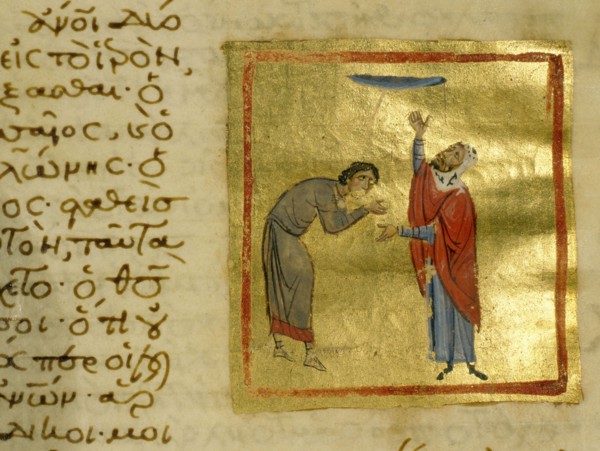 ἄνοι δύο
εἰς τὸ ἱερὸν,
ξασθαι· ὁ
σαῖος, καὶ ὁ
λώνης· ὁ
ος· σταθεὶς
τὸν, ταῦτα
χετο· ὁ θς̄
σοι· ὅτι οὐ
πὲρ οἱ λ
ἀνῶν· ἁρ
δικοι· μοι